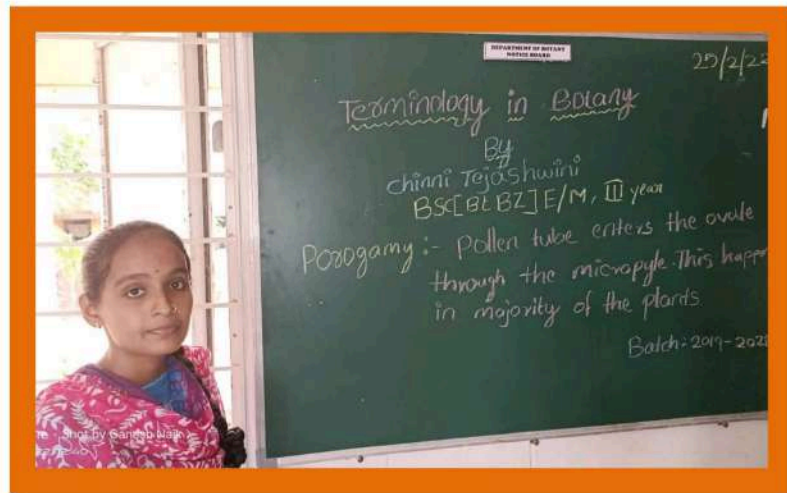 DEPARTMENT OF BOTANY
NOTICE BOARD
25/2/22
Terminology in Botany
By
Chinni Tejashwini
BSC[BtBZ] E/M, III year
Porogamy :- Pollen tube enters the ovule
through the micropyle. This happen
in majority of the plants
Batch: 2019-2022
Shot by Ganesh Naik